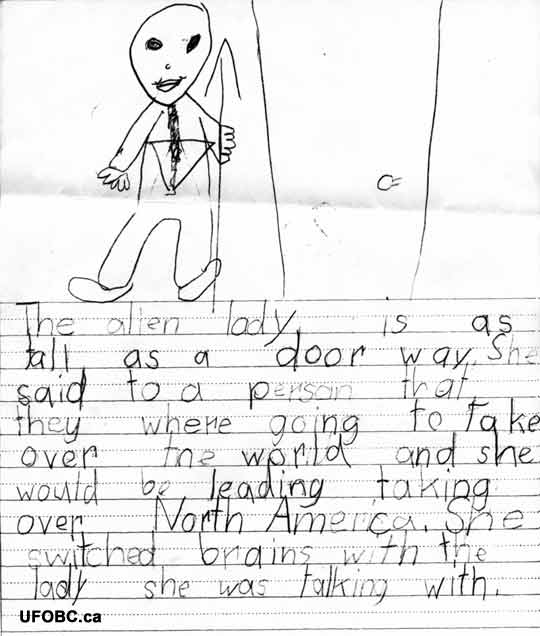 The alien lady, is as
tall as a door way. She
said to a person that
they where going to take
over the world and she
would be leading taking
over North America. She
switched brains with the
lady she was talking with.
UFOBC.ca